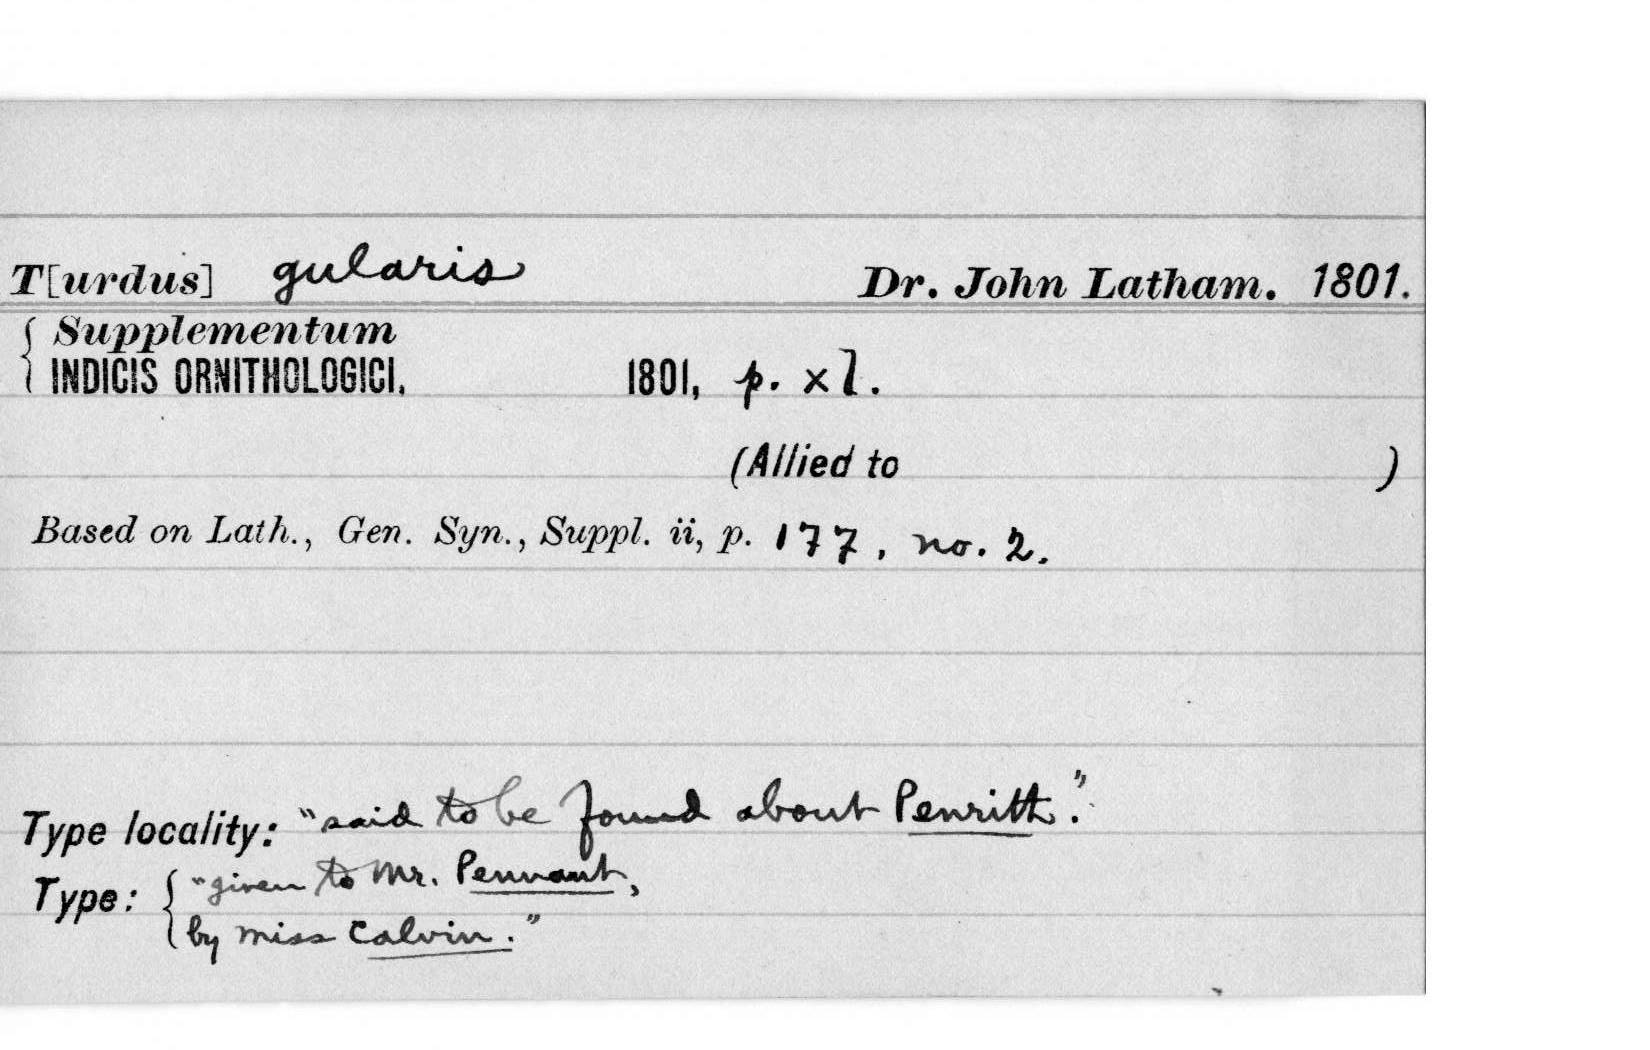 T[urdus] gularis Dr. John Latham. 1801.
{ Supplementum
INDICIS ORNITHOLOGICI, 1801, p. xl.
(Allied to )
Based on Lath., Gen. Syn., Suppl. ii, p. 177, no. 2.
Type locality: "said to be found about Penrith."
Type: { "given to Mr. Pennant,
by Miss Calvin."